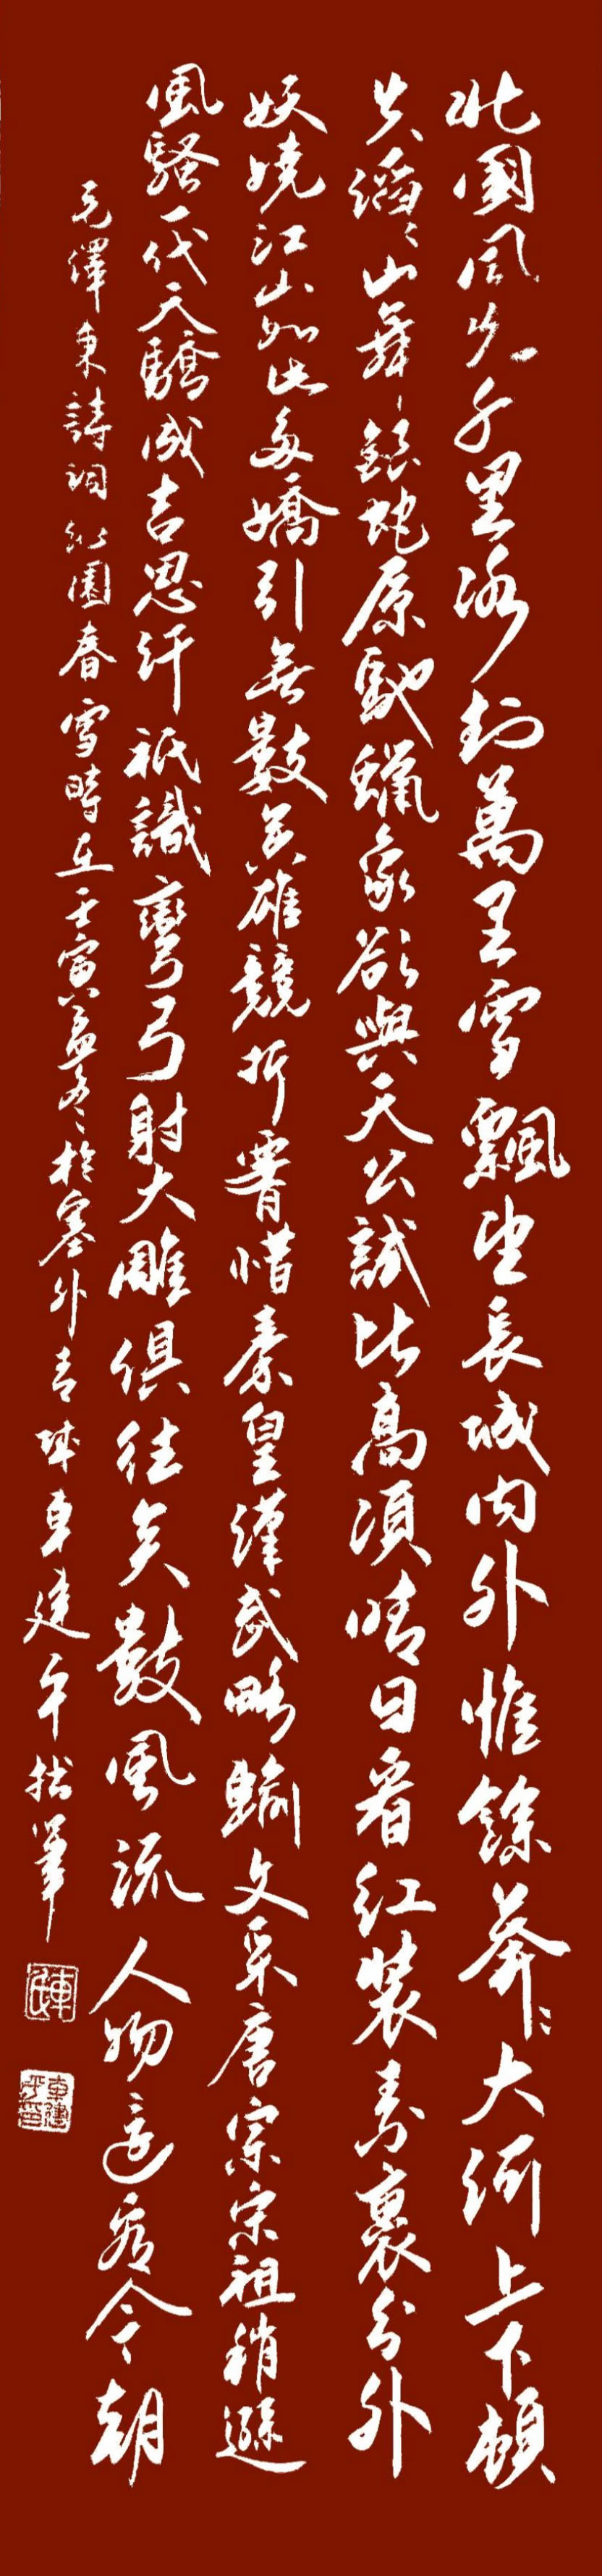 北國風光千里冰封萬里雪飄望長城內外惟餘莽々大河上下頓
失滔々山舞銀蛇原馳蠟象欲與天公試比高須晴日看紅裝素裹分外
妖嬈江山如此多嬌引無數英雄競折腰惜秦皇漢武略輸文采唐宗宋祖稍遜
風騷一代天驕成吉思汗祇識彎弓射大雕俱往矣數風流人物還看今朝
毛澤東詩詞沁園春雪時在壬寅孟冬於塞外青城車建平拙筆
車
車建平印